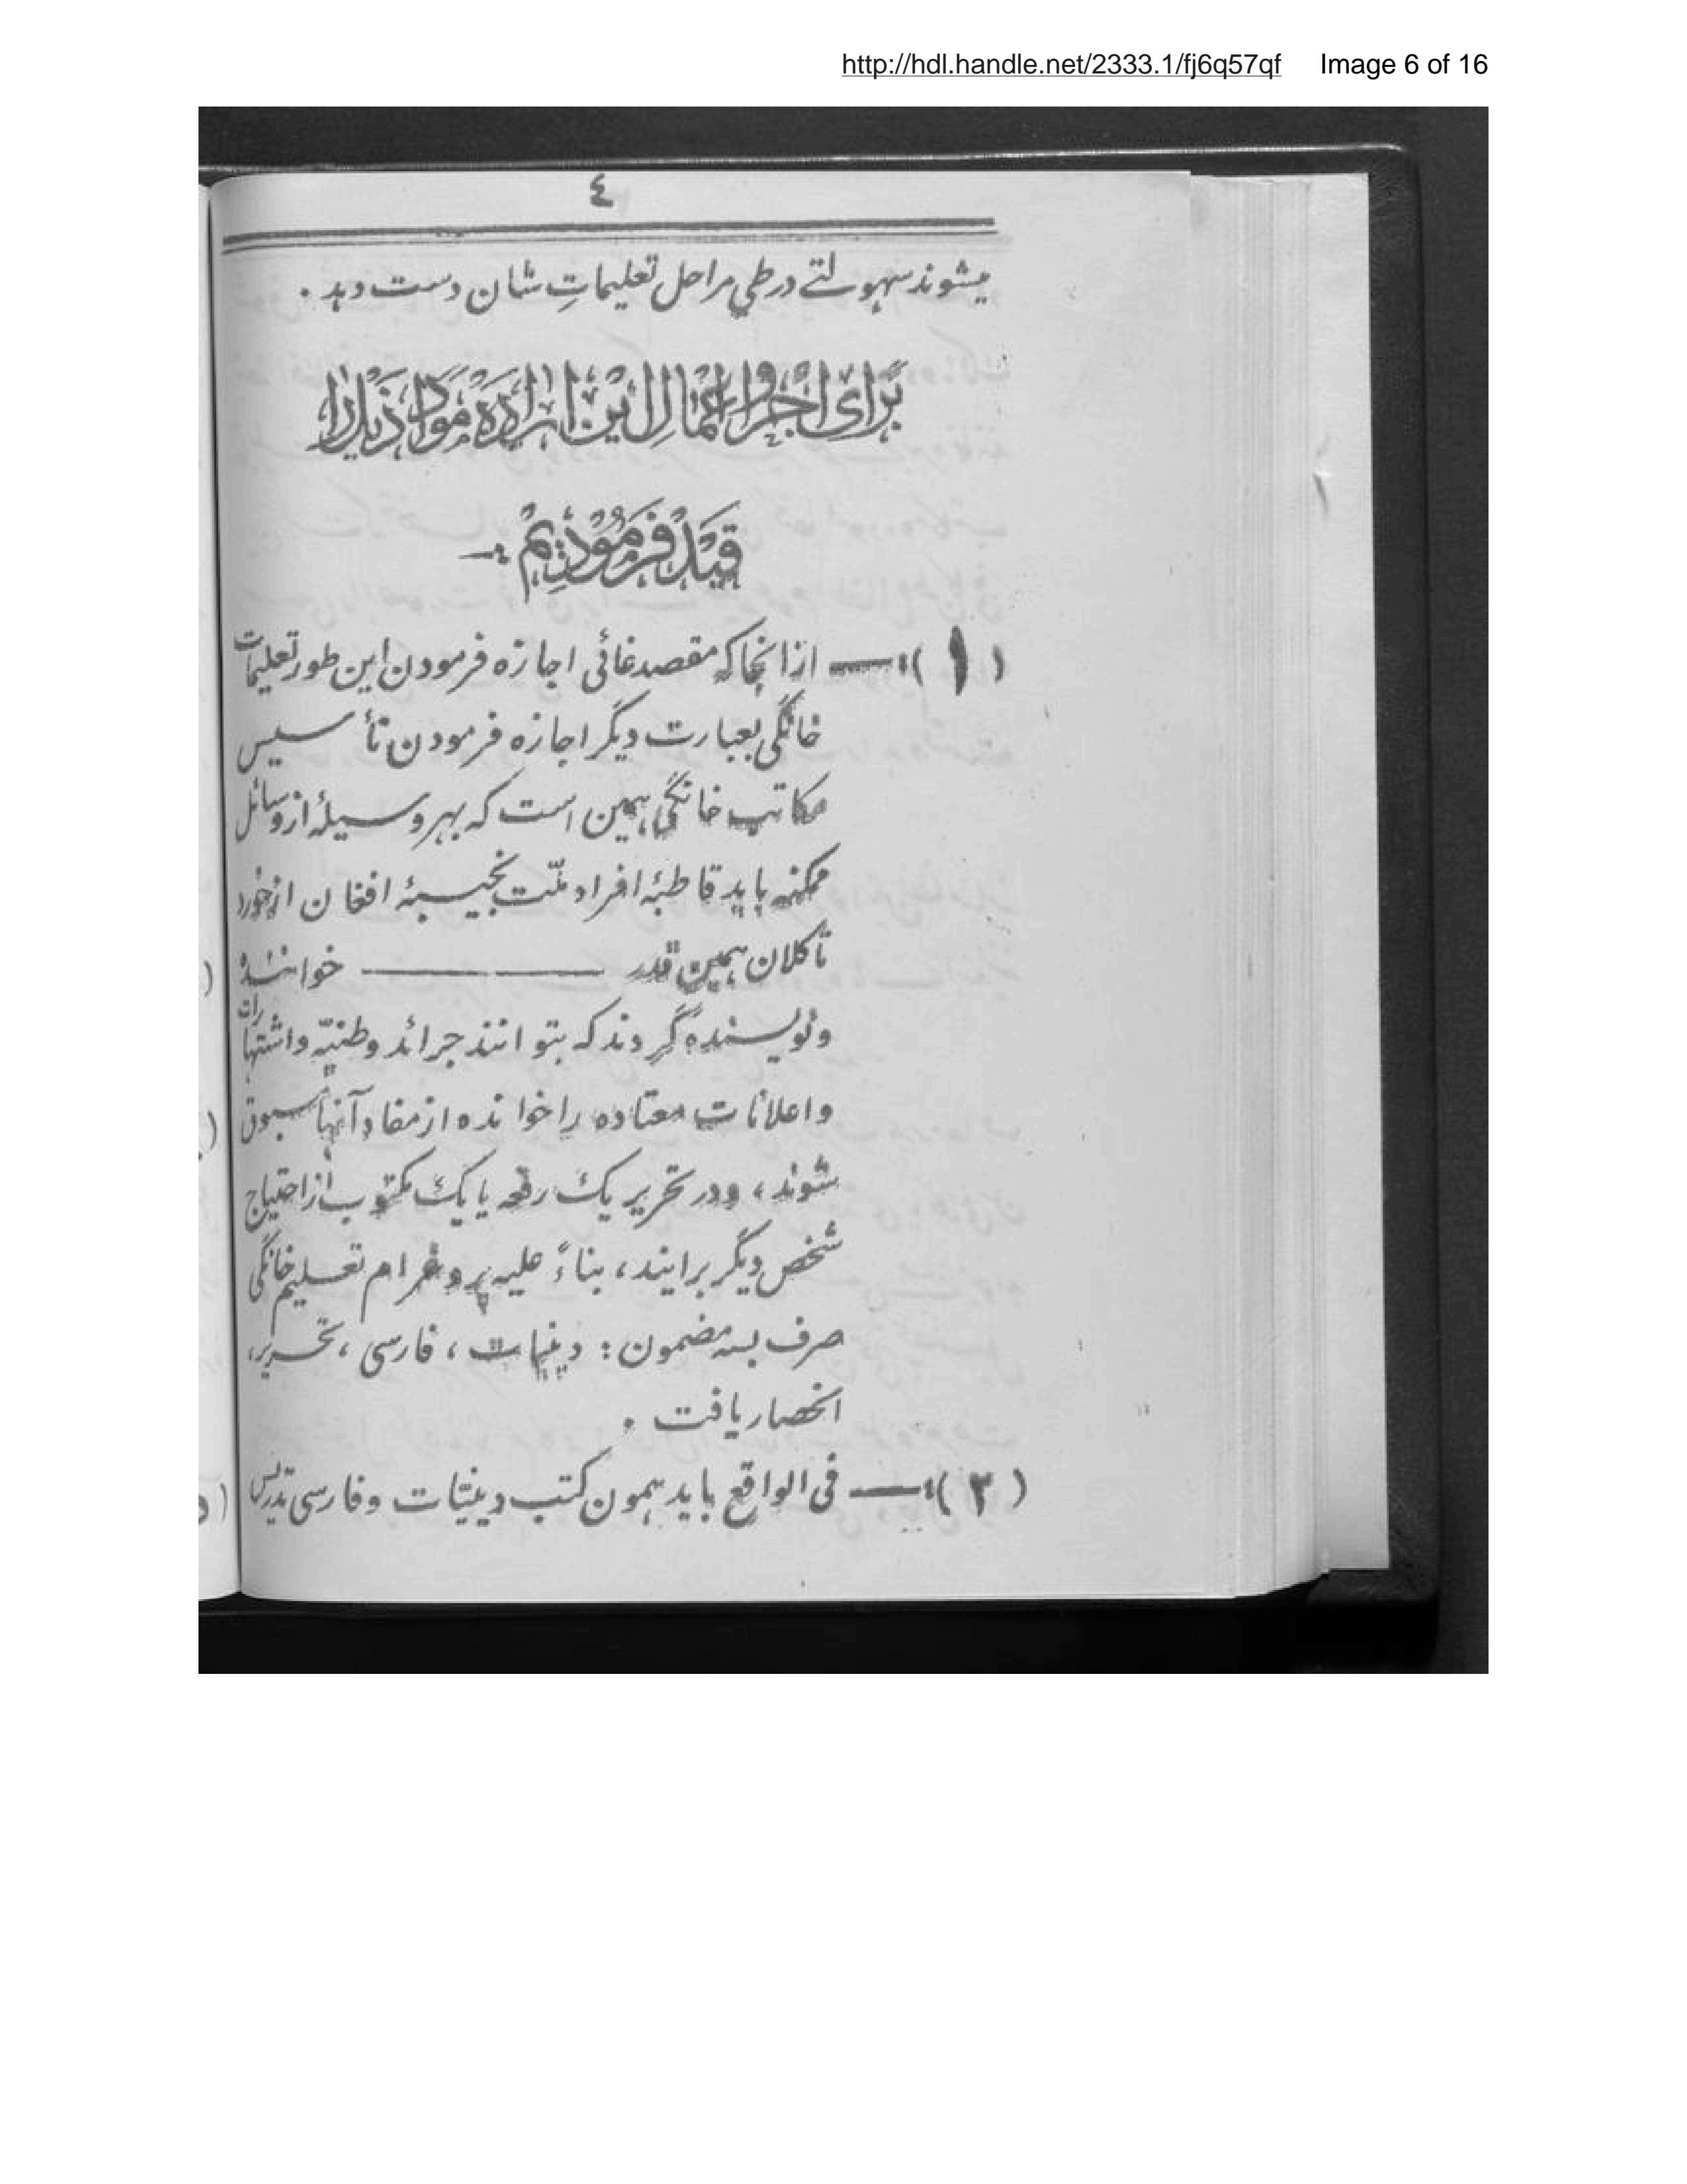 http://hdl.handle.net/2333.1/fj6q57qf Image 6 of 16
٤
میشوند سهولتے در طی مراحل تعلیماتِ شان دست دہد ۰
بَرای اجْرا و اِعْمالِ اینْ ارادَهْ مَوادِ ذَیْل را
قَیْد فَرمُودیْم :—
(١):— ازانجا که مقصد غائی اجازه فرمودن این طور تعلیمات
خانگی بعبارت دیگر اجازه فرمودن تأسیس
مکاتب خانگی همین است که بهر وسیلهٔ از وسائل
ممکنه باید قاطبهٔ افراد ملّت نجیبهٔ افغان از خورد
تا کلان همین قدر ——— خوانندهٔ
و نویسنده گردند که بتوانند جرائد وطنیّه و اشتهارات
و اعلانات معتاده را خوانده از مفاد آنها مسبوق
شوند، و در تحریر یک رقعه یا یک مکتوب از احتیاج
شخص دیگر برایند، بناءً علیه پروغرام تعلیم خانگی
صرف بسه مضمون : دینیات ، فارسی ، تحریر،
انحصار یافت ۰
(٢):— فی الواقع باید همون کتب دینیّات و فارسی تدریس